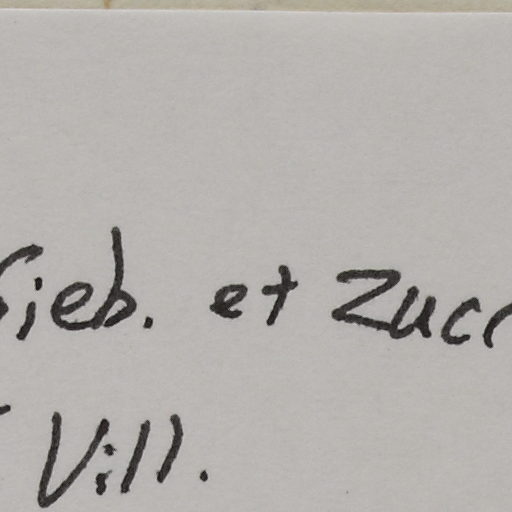 Sieb. et Zucc
Vill.